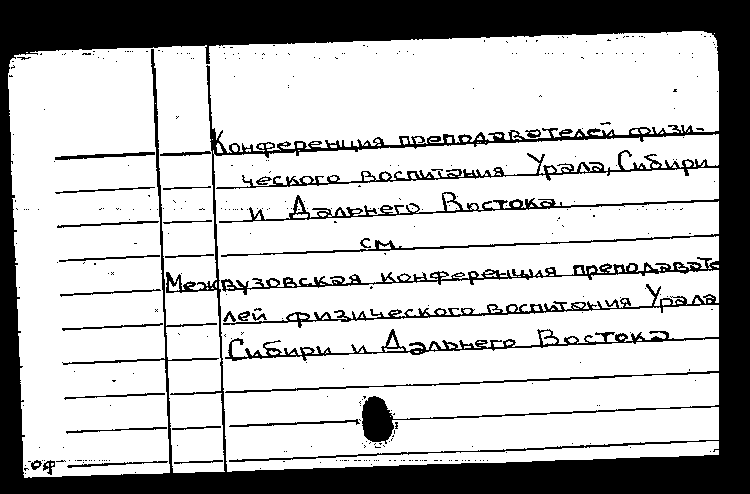 Конференция преподавателей физи-
ческого воспитания Урала, Сибири
и Дальнего Востока.
см.
Межвузовская конференция преподавате
лей физического воспитания Урала
Сибири и Дальнего Востока
оф